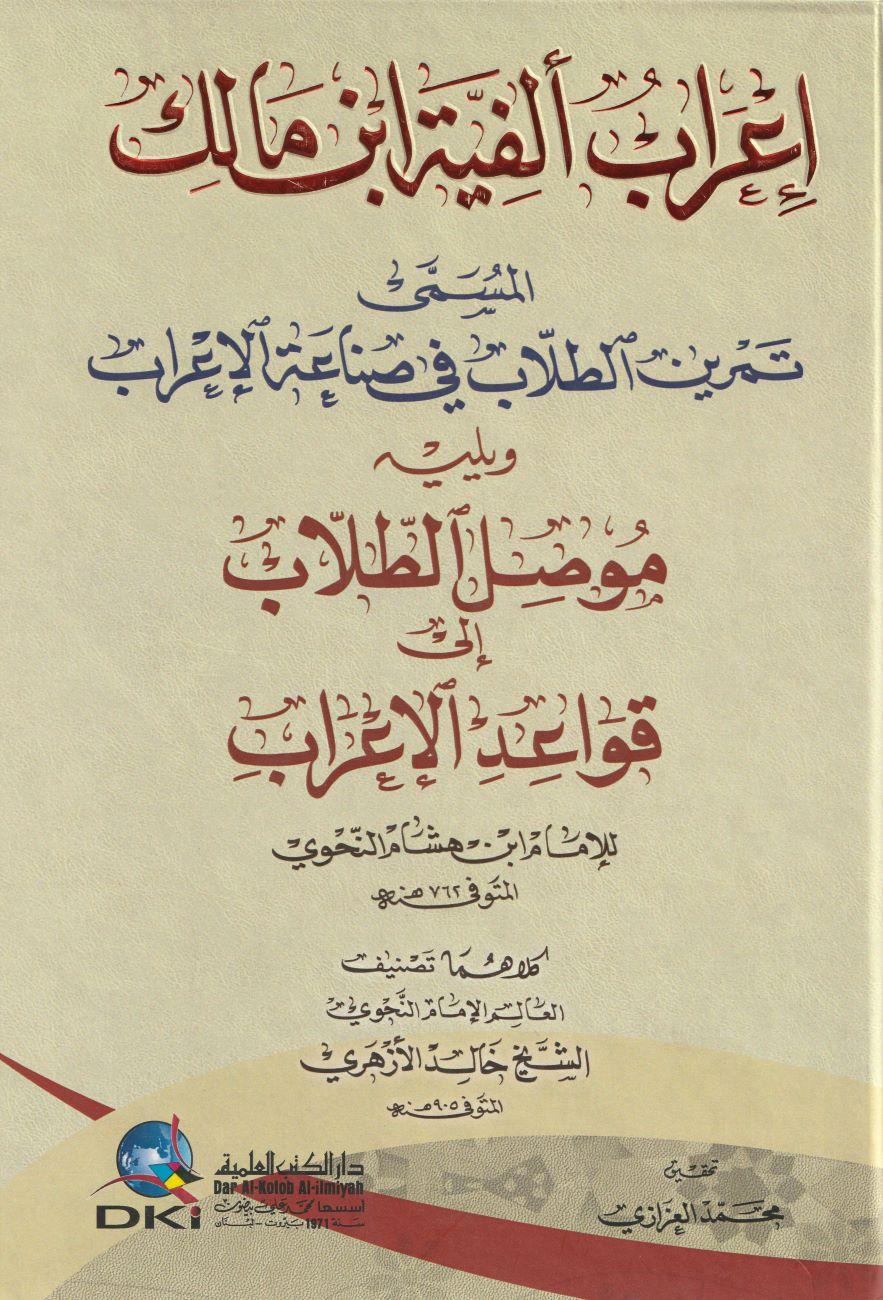 إِعْرَابُ أَلْفِيَّة ابن مَالِك
المُسَمَّى
تَمْرِين الطلّاب في صناعَة الإعْراب
ويليه
مُوصِل الطّلّاب
إلى
قَوَاعِدِ الإعْرَابِ
للإمَام ابن هشام النّحوي
المتوفى ٧٦٢ هـنة
كلاهُمَا تصنيف
العَالِم الإمَام النَّحوي
الشَّيْخ خَالِد الأزهَري
المتوفى ٩٠٥ هـنة
تحقيق
محمّد العزازي
دار الكتب العلمية
Dar Al-Kotob Al-ilmiyah
أسسها محمد علي بيضون
سنة 1971 بيروت - لبنان
DKi